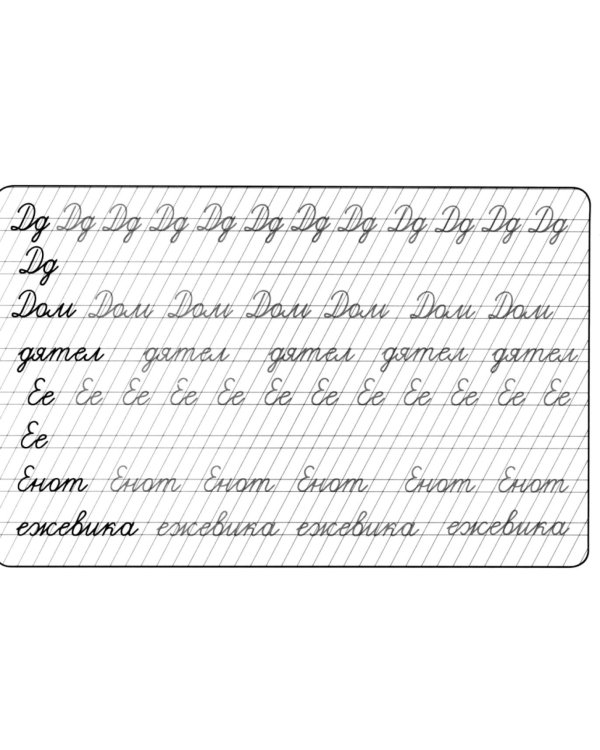 Дд Дд Дд Дд Дд Дд Дд Дд Дд Дд Дд Дд
Дд
Дом Дом Дом Дом Дом Дом Дом
дятел дятел дятел дятел дятел
Ее Ее Ее Ее Ее Ее Ее Ее Ее Ее Ее Ее
Ее
Енот Енот Енот Енот Енот Енот
ежевика ежевика ежевика ежевика